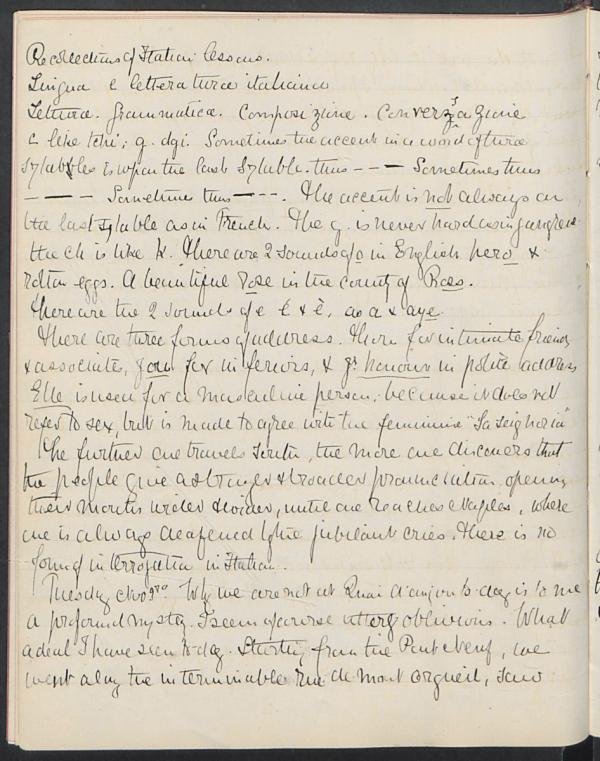 Recollections of Italian lessons.
Lingua e letteratura italiana
Lettura. Grammatica. Composizione. Conversazione
c like tchi; g. dgi. Sometimes the accent in a word of three
syllables is upon the last syllable. thus - - — Sometimes thus
- — - Sometimes thus — - -. The accent is not always on
the last syllable as in French. The g. is never hard as in
the ch is like k. There are 2 sounds of o in English hero &
rotten eggs. A beautiful Rose in the county of Ross.
There are the 2 sounds of e é & è, as a & aye.
There are three forms of address. Thou for intimate friends
& associates, you for inferiors, & yr honour in polite address
Elle is used for a masculine person; because it does not
refer to sex, but is made to agree with the feminine "La seignoria"
The further one travels South, the more one discovers that
the people give a stronger & broader pronunciation opening
their mouths wider & wider, until one reaches Naples, where
one is always deafened by the jubilant cries. There is no
form of interrogation in Italian.
Tuesday Why we are not at Quai d'anjou to-day is to me
a profound mystery. I seem of course utterly oblivious. What
a deal I have seen to-day. Starting from the Pont Neuf, we
went along the interminable Rue de Mont orgueil, saw